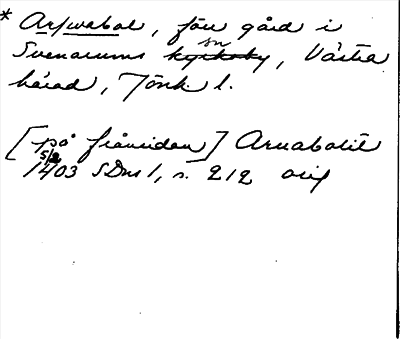 * Arfwabol, förr gård i
Svenarums sn, Västra
härad, Jönk. l.
[på frånsidan] Aruabolit
5/2 1403 SDns 1, s. 212 orig